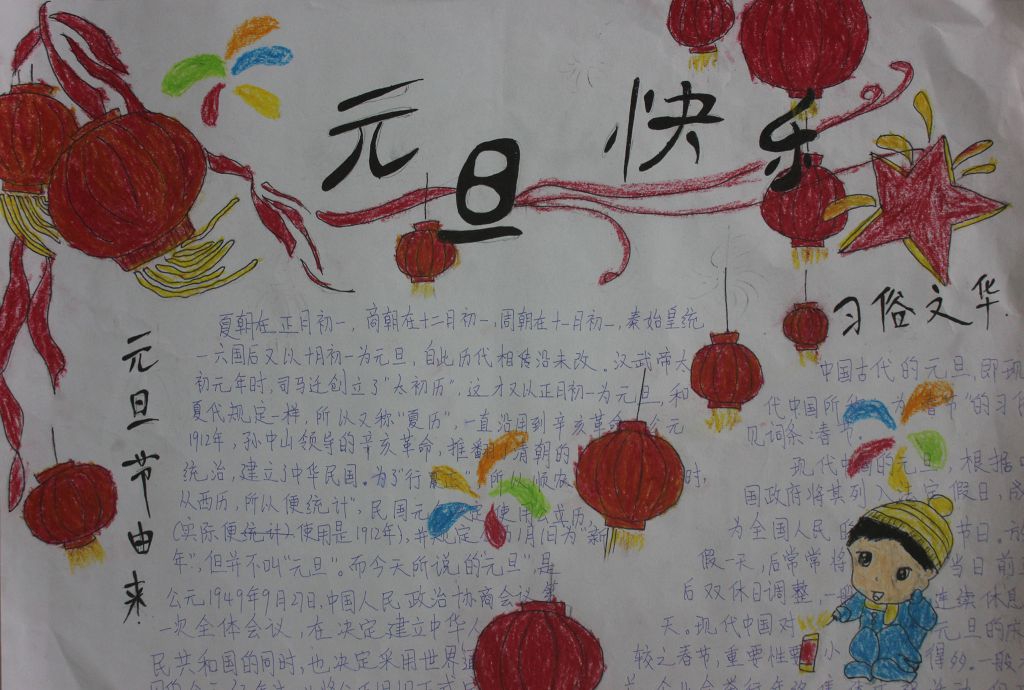 元旦快乐
元旦节由来
夏朝在正月初一，商朝在十二月初一，周朝在十一月初一，秦始皇统
一六国后又以十月初一为元旦，自此历代相传沿未改。汉武帝太
初元年时，司马迁创立了“太初历”，这才又以正月初一为元旦，和
夏代规定一样，所以又称“夏历”，一直沿用到辛亥革命 公元
1912年，孙中山领导的辛亥革命，推翻了清朝的
统治，建立了中华民国。为了“行夏正”，所以顺农 时，
从西历，所以便统计”，民国元 使用公历，
(实际便统计使用是1912年)，并规定 1月1日为“新
年”，但并不叫“元旦”。而今天所说的“元旦”，是
公元1949年9月27日，中国人民政治协商会议第
一次全体会议，在决定建立中华人
民共和国的同时，也决定采用世界通
习俗文华
中国古代的元旦，即现
代中国所 为“春节”的习俗
见词条：春节。
现代中国的元旦，根据中
国政府将其列入法定假日，成
为全国人民的 节日。放
假一天，后常常将 当日前
后双休日调整，一般 连续休息
天。现代中国对 元旦的庆
较之春节，重要性要小 得多。一般